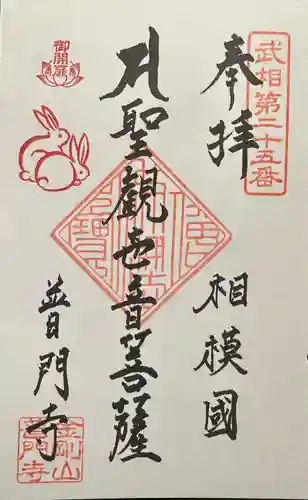 武相第二十五番
奉拝
相模國
聖観世音菩薩
御開扉
普門寺
金剛山
普門寺